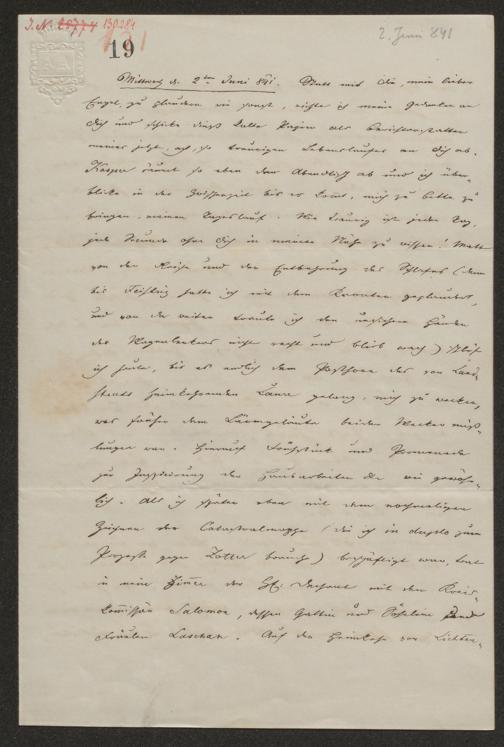 J. N. 138284
19
2. Juni 841
Mittwoch d. 2ten Juni 841. Statt mit Dir, mein lieber
Engel, zu plaudern wie sonst, richte ich meine Gedanken an
Dich und schicke dieß kalte Papier als Berichterstatter
meines jetzt, ach, so traurigen Lebenslaufes an Dich ab.
Kaspar räumt so eben den Abendtisch ab und ich über-
blicke in der Zwischenzeit bis er kommt, mich zu Bette zu
bringen, meinen Tageslauf. Wie traurig ist jeder Tag,
jede Stunde ohne Dich in meiner Nähe zu wissen! Matt
von der Reise und der Entbehrung des Schlafes (denn
bis Feistritz hatte ich mit dem geplaudert,
und von da weiter traute ich den Händen
des Wagenlenkers nicht recht und blieb wach) schlief
ich heute, bis es endlich dem Posthorn des von
heimkehrenden gelang, mich zu wecken,
was früher dem Lärmgeläute beider Wecker miß-
lungen war. Hierauf Frühstück und Promenade
zur Inspicirung der Hausarbeiten etc wie gewöhn-
lich. Als ich später eben mit dem nochmaligen
Zeichnen der Catastralmappe (die ich in duplo zum
Prozeß gegen brauche) beschäftigt war, trat
in mein Zimmer der Hr. Dechant mit dem Kreis-
Commissär Salomon, dessen Gattin und
Fräulein Laschan. Auf der Heimkehr von Lichten-